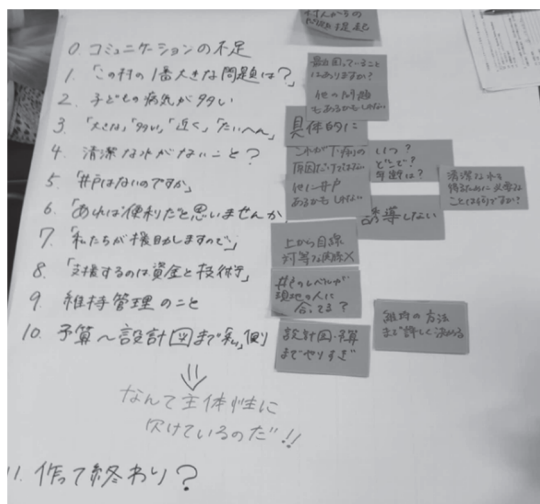 0. コミュニケーションの不足
1. 「この村の1番大きな問題は?」
2. 子どもの病気が多い
3. 「大きな」「多い」「近く」「たいへん」
4. 清潔な水がないこと?
5. 「井戸はないのですか」
6. 「あれば便利だと思いませんか
7. 「私たちが援助しますので」
8. 「支援するのは資金と技術です」
9. 維持管理のこと
10. 予算〜設計図まで「私」側
⇓
なんて主体性に
欠けているのだ!!
11. 作って終わり?
最も困っていること
はありますか?
他の問題
もあるかもしれない
具体的に
これが下痢の
原因だけではない
他に井戸
あるかもしれない
いつ?
どこで?
年齢は?
清潔な水を
得るために必要な
ことは何ですか?
誘導しない
上から目線
対等な関係×
井戸のレベルが
現地の人に
合ってる?
設計図・予算
までやりすぎ
維持の方法
まで詳しく決める